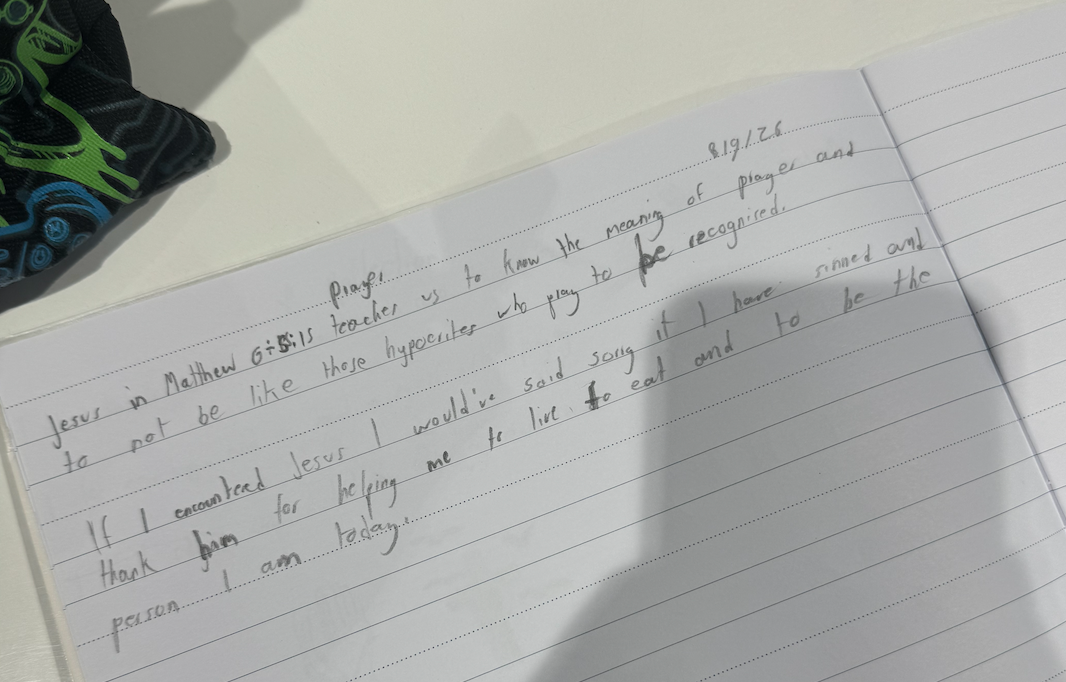 8/9/26
Prayer
Jesus in Matthew 6:5:15 teaches us to know the meaning of prayer and
to not be like those hypocrites who pray to be recognised.
If I encounterd Jesus I would've said sorry if I have sinned and
thank him for helping me to live to eat and to be the
person I am today.